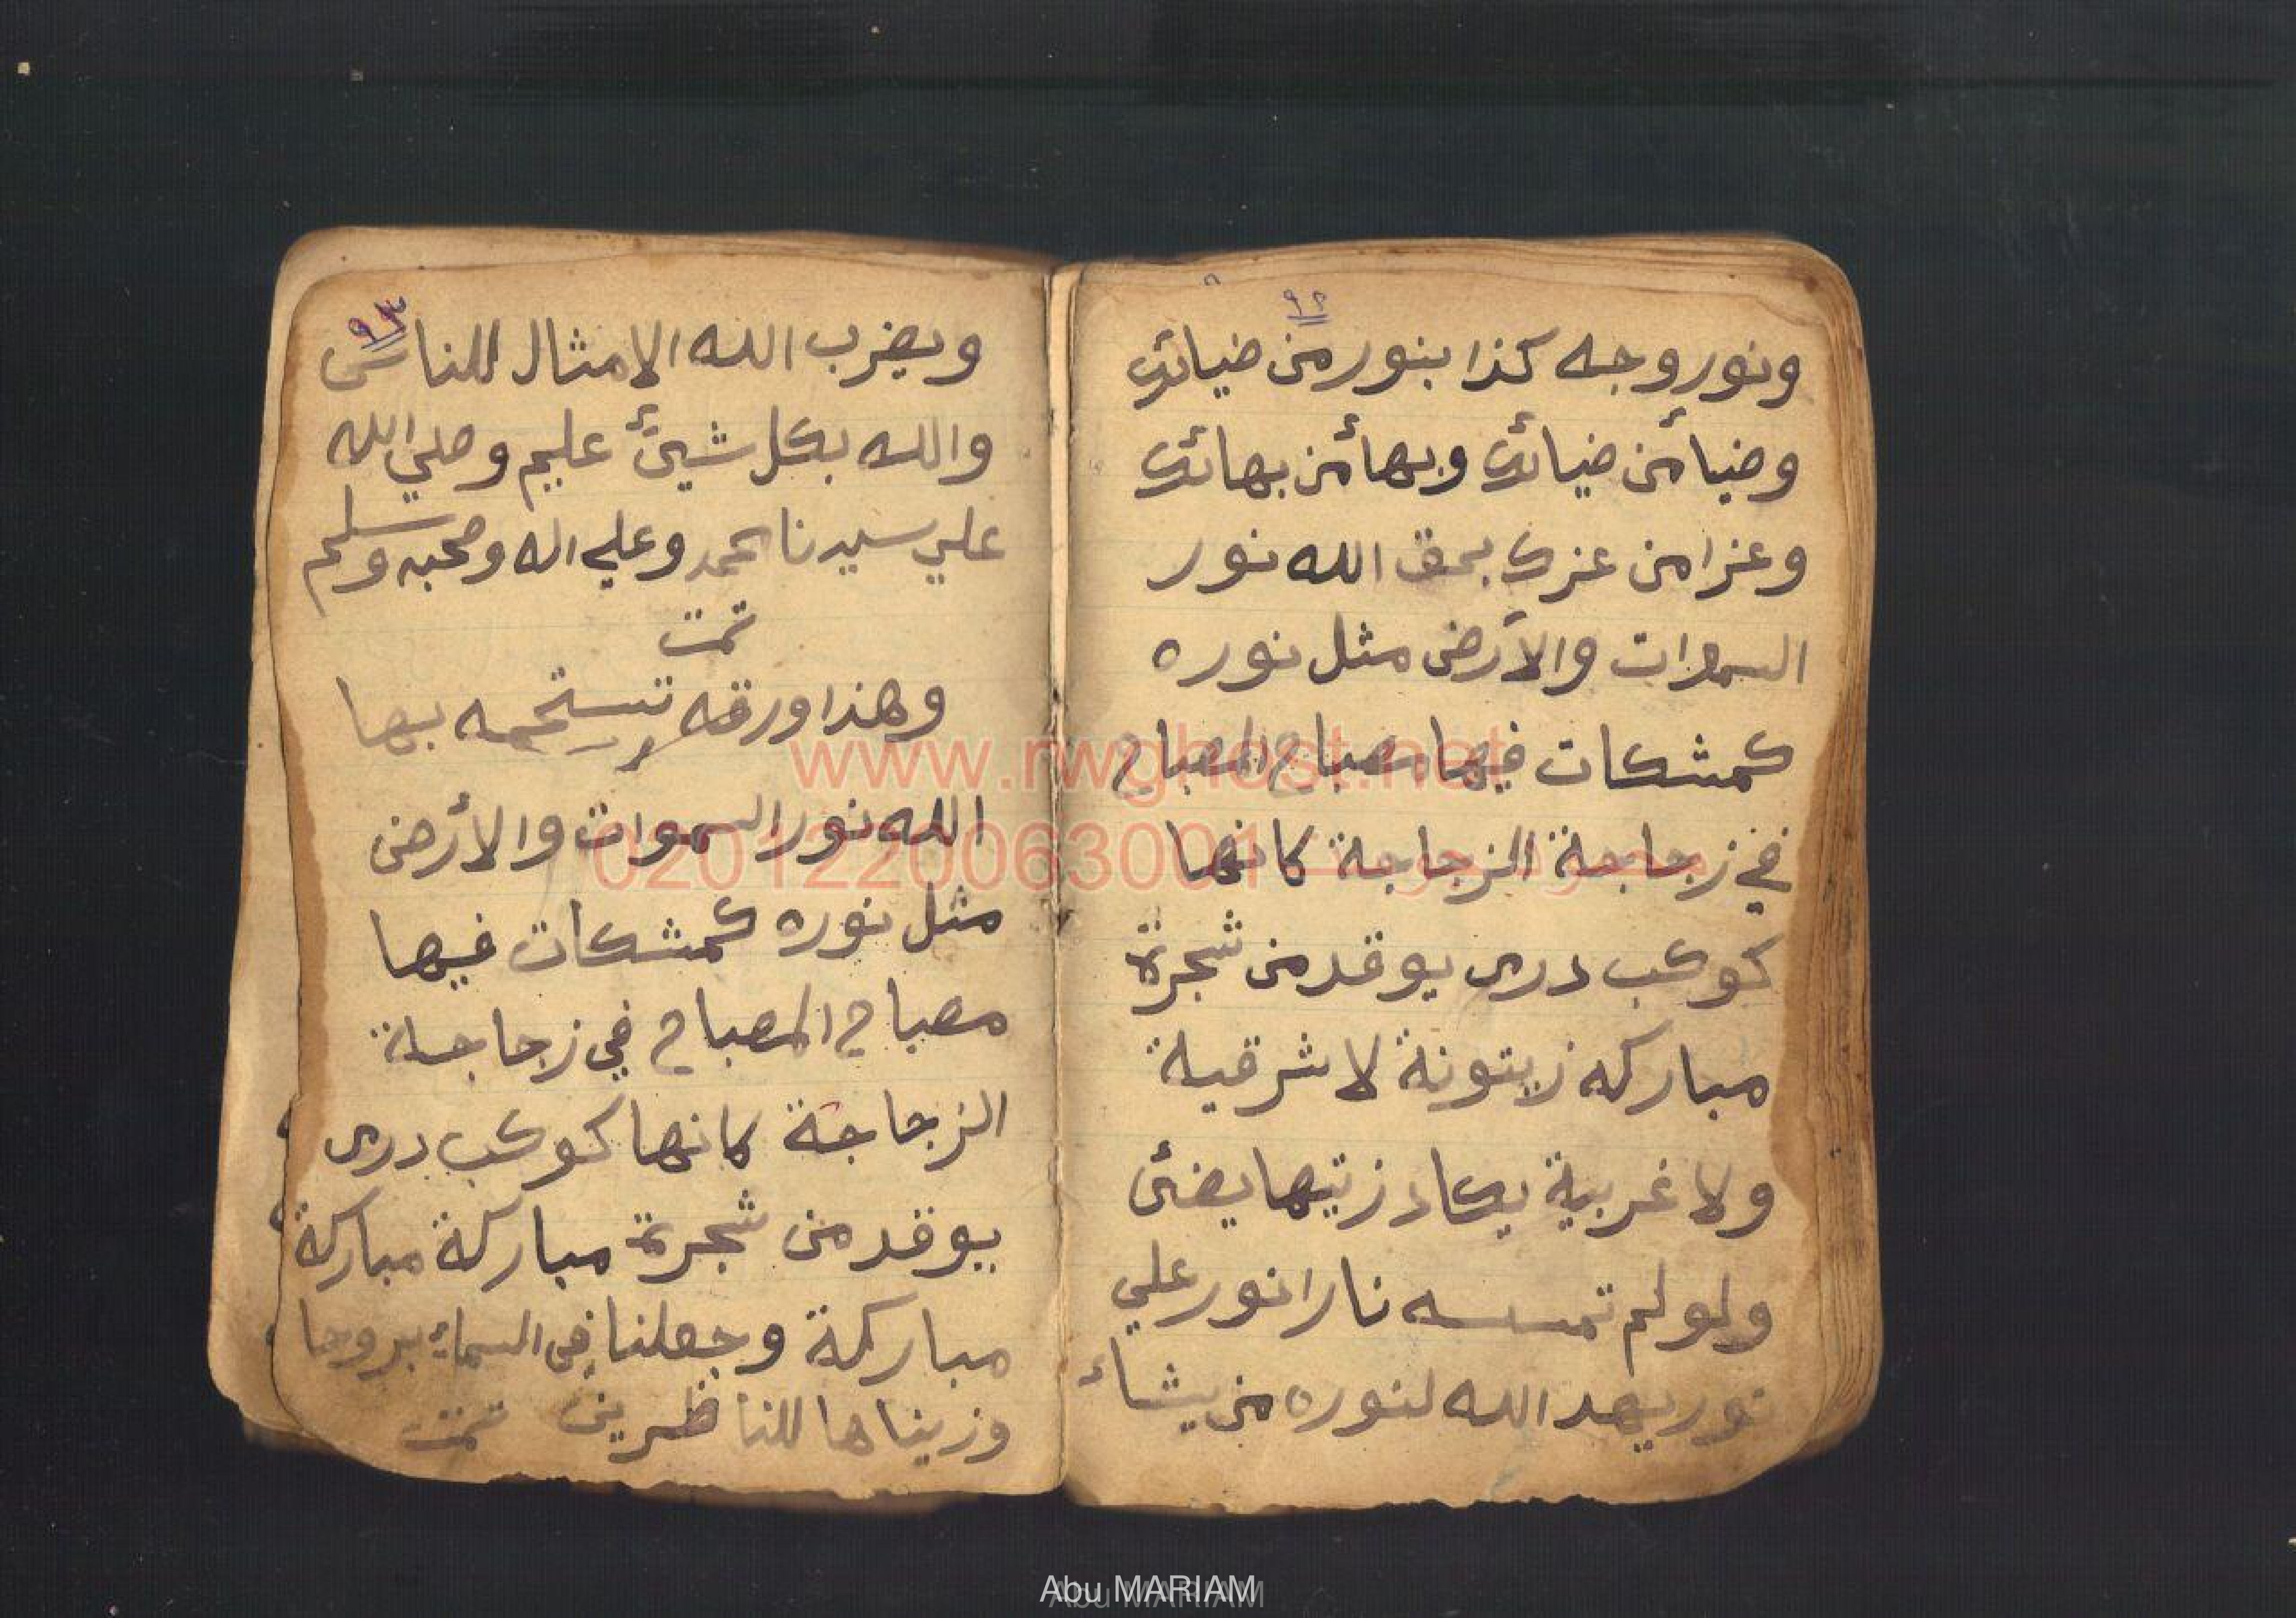 ٩٢
ونور وجه كذا بنور من ضيائك
وضيأ من ضيائك وبهأ من بهائك
وعزا من عزك بحق الله نور
السموات والأرض مثل نوره
كمشكات فيها مصباح المصباح
في زجاجة الزجاجة كانها
كوكب درى يوقد من شجرة
مباركه زيتونة لا شرقية
ولا غربية يكاد زيتها يضئ
ولو لم تمسسه نارا نور علي
نور يهد الله لنوره من يشاء
٩٣
ويضرب الله الامثال للناس
والله بكل شيئ عليم وصلي الله
علي سيدنا محمد وعلي اله وصحبه وسلم
تمت
وهذا ورقه تستحمه بها
الله نور السموات والأرض
مثل نوره كمشكات فيها
مصباح المصباح في زجاجة
الزجاجة كانها كوكب درى
يوقد من شجرة مباركة مباركة
مباركة وجعلنا فى السماء بروجا
وزيناها للناظرين تمت
www.rwghost.net
0201220063001
Abu MARIAM